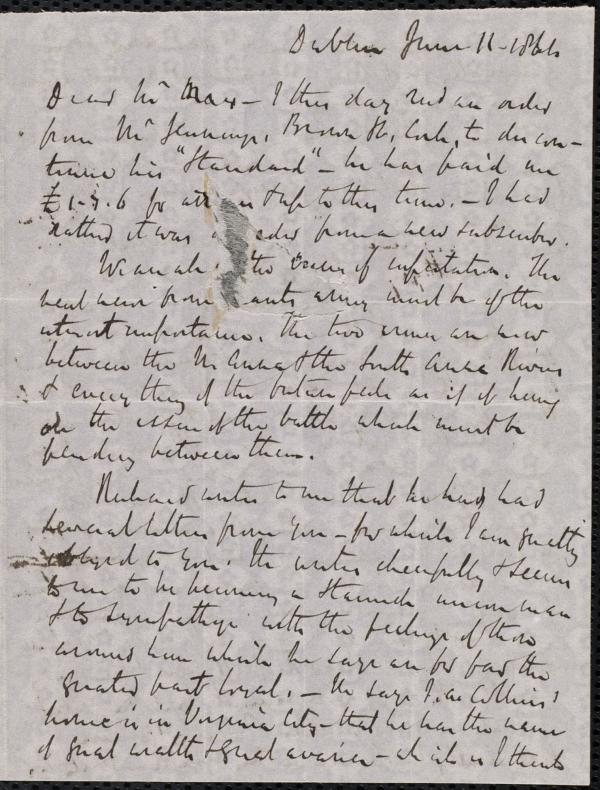 Dublin June 11 - 1864
Dear Mr May - I this day recd an order
from Mr Jennings, Brown St, Cork, to discon-
tinue his "Standard" - he has paid me
£1-5.6 for all up to this time. - I had
rather it was from a new subscriber.
We are all the of expectation. The
next news from army must be of the
utmost importance. The two armies are now
between the N. Anna & the South Anna Rivers
& every thing of the feels as if
on the issue of the battle which must be
pending between them.
Richard writes to me that he has had
several letters from you - for which I am greatly
obliged to you. He writes cheerfully & seems
to me to be becoming a staunch union man
& to sympathize with the feelings of those
around him which he says are for far the
greater part loyal. - He says Collins'
home is in Virginia City - that he has the name
of great wealth & great avarice - which is I think